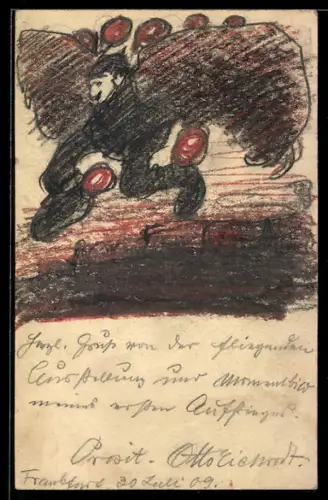 Herzl. Gruß von der fliegenden
Ausstellung und Momentbild
meines ersten Aufstieges.
Prosit. Otto
Frankfurt 30 Juli 09.